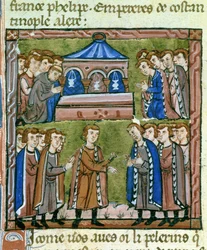 france phelipe. Empereres de costan
tinople alere:
icome uos aues oi li pelerins q